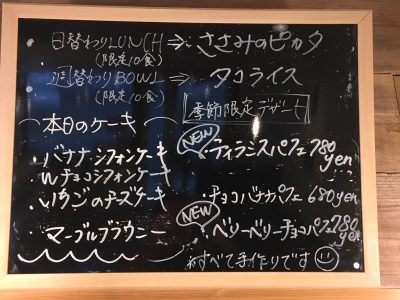 日替わりLUNCH⇒ささみのピカタ
(限定10食)
週替わりBOWL⇒タコライス
(限定10食)
本日のケーキ
・バナナシフォンケーキ
・Wチョコシフォンケーキ
・いちごのチーズケーキ
マーブルブラウニー
季節限定デザート
NEW
・ティラミスパフェ780yen
・チョコバナナパフェ680yen
NEW
・ベリーベリーチョコパフェ780yen
※すべて手作りです